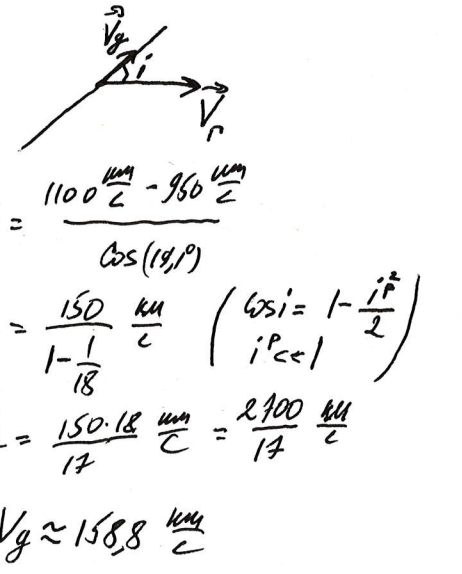 V⃗g
i
V⃗r
= (1100 км/с - 950 км/с) / Cos(19,1°)
= 150 / (1 - 1/18) км/с (cos i = 1 - i^р²/2
i^р << 1)
= 150·18 / 17 км/с = 2700 / 17 км/с
Vg ≈ 158,8 км/с